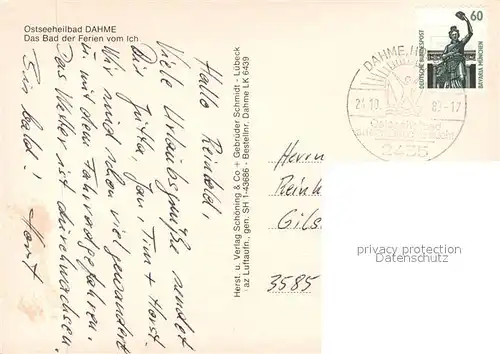 Ostseeheilbad DAHME
Das Bad der Ferien vom Ich
Hallo Reinhold,
Viele Urlaubsgrüße sendet
Dir Jutta, Jan, Timo + Horst.
Wir sind schon viel gewandert
u. mit dem Fahrrad gefahren.
Das Wetter ist durchwachsen.
Bis bald! Horst
Herst. u. Verlag Schöning & Co + Gebrüder Schmidt - Lübeck
az Luftaufn., gen. SH 1-43686 - Bestellnr. Dahme LK 6439
DEUTSCHE BUNDESPOST
60
BAVARIA MÜNCHEN
DAHME, H
21.10.
-17
Ostseeheilbad
2435
Herrn
Reinh
Gils
3585
privacy protection
www.ansichtskartenversand.com